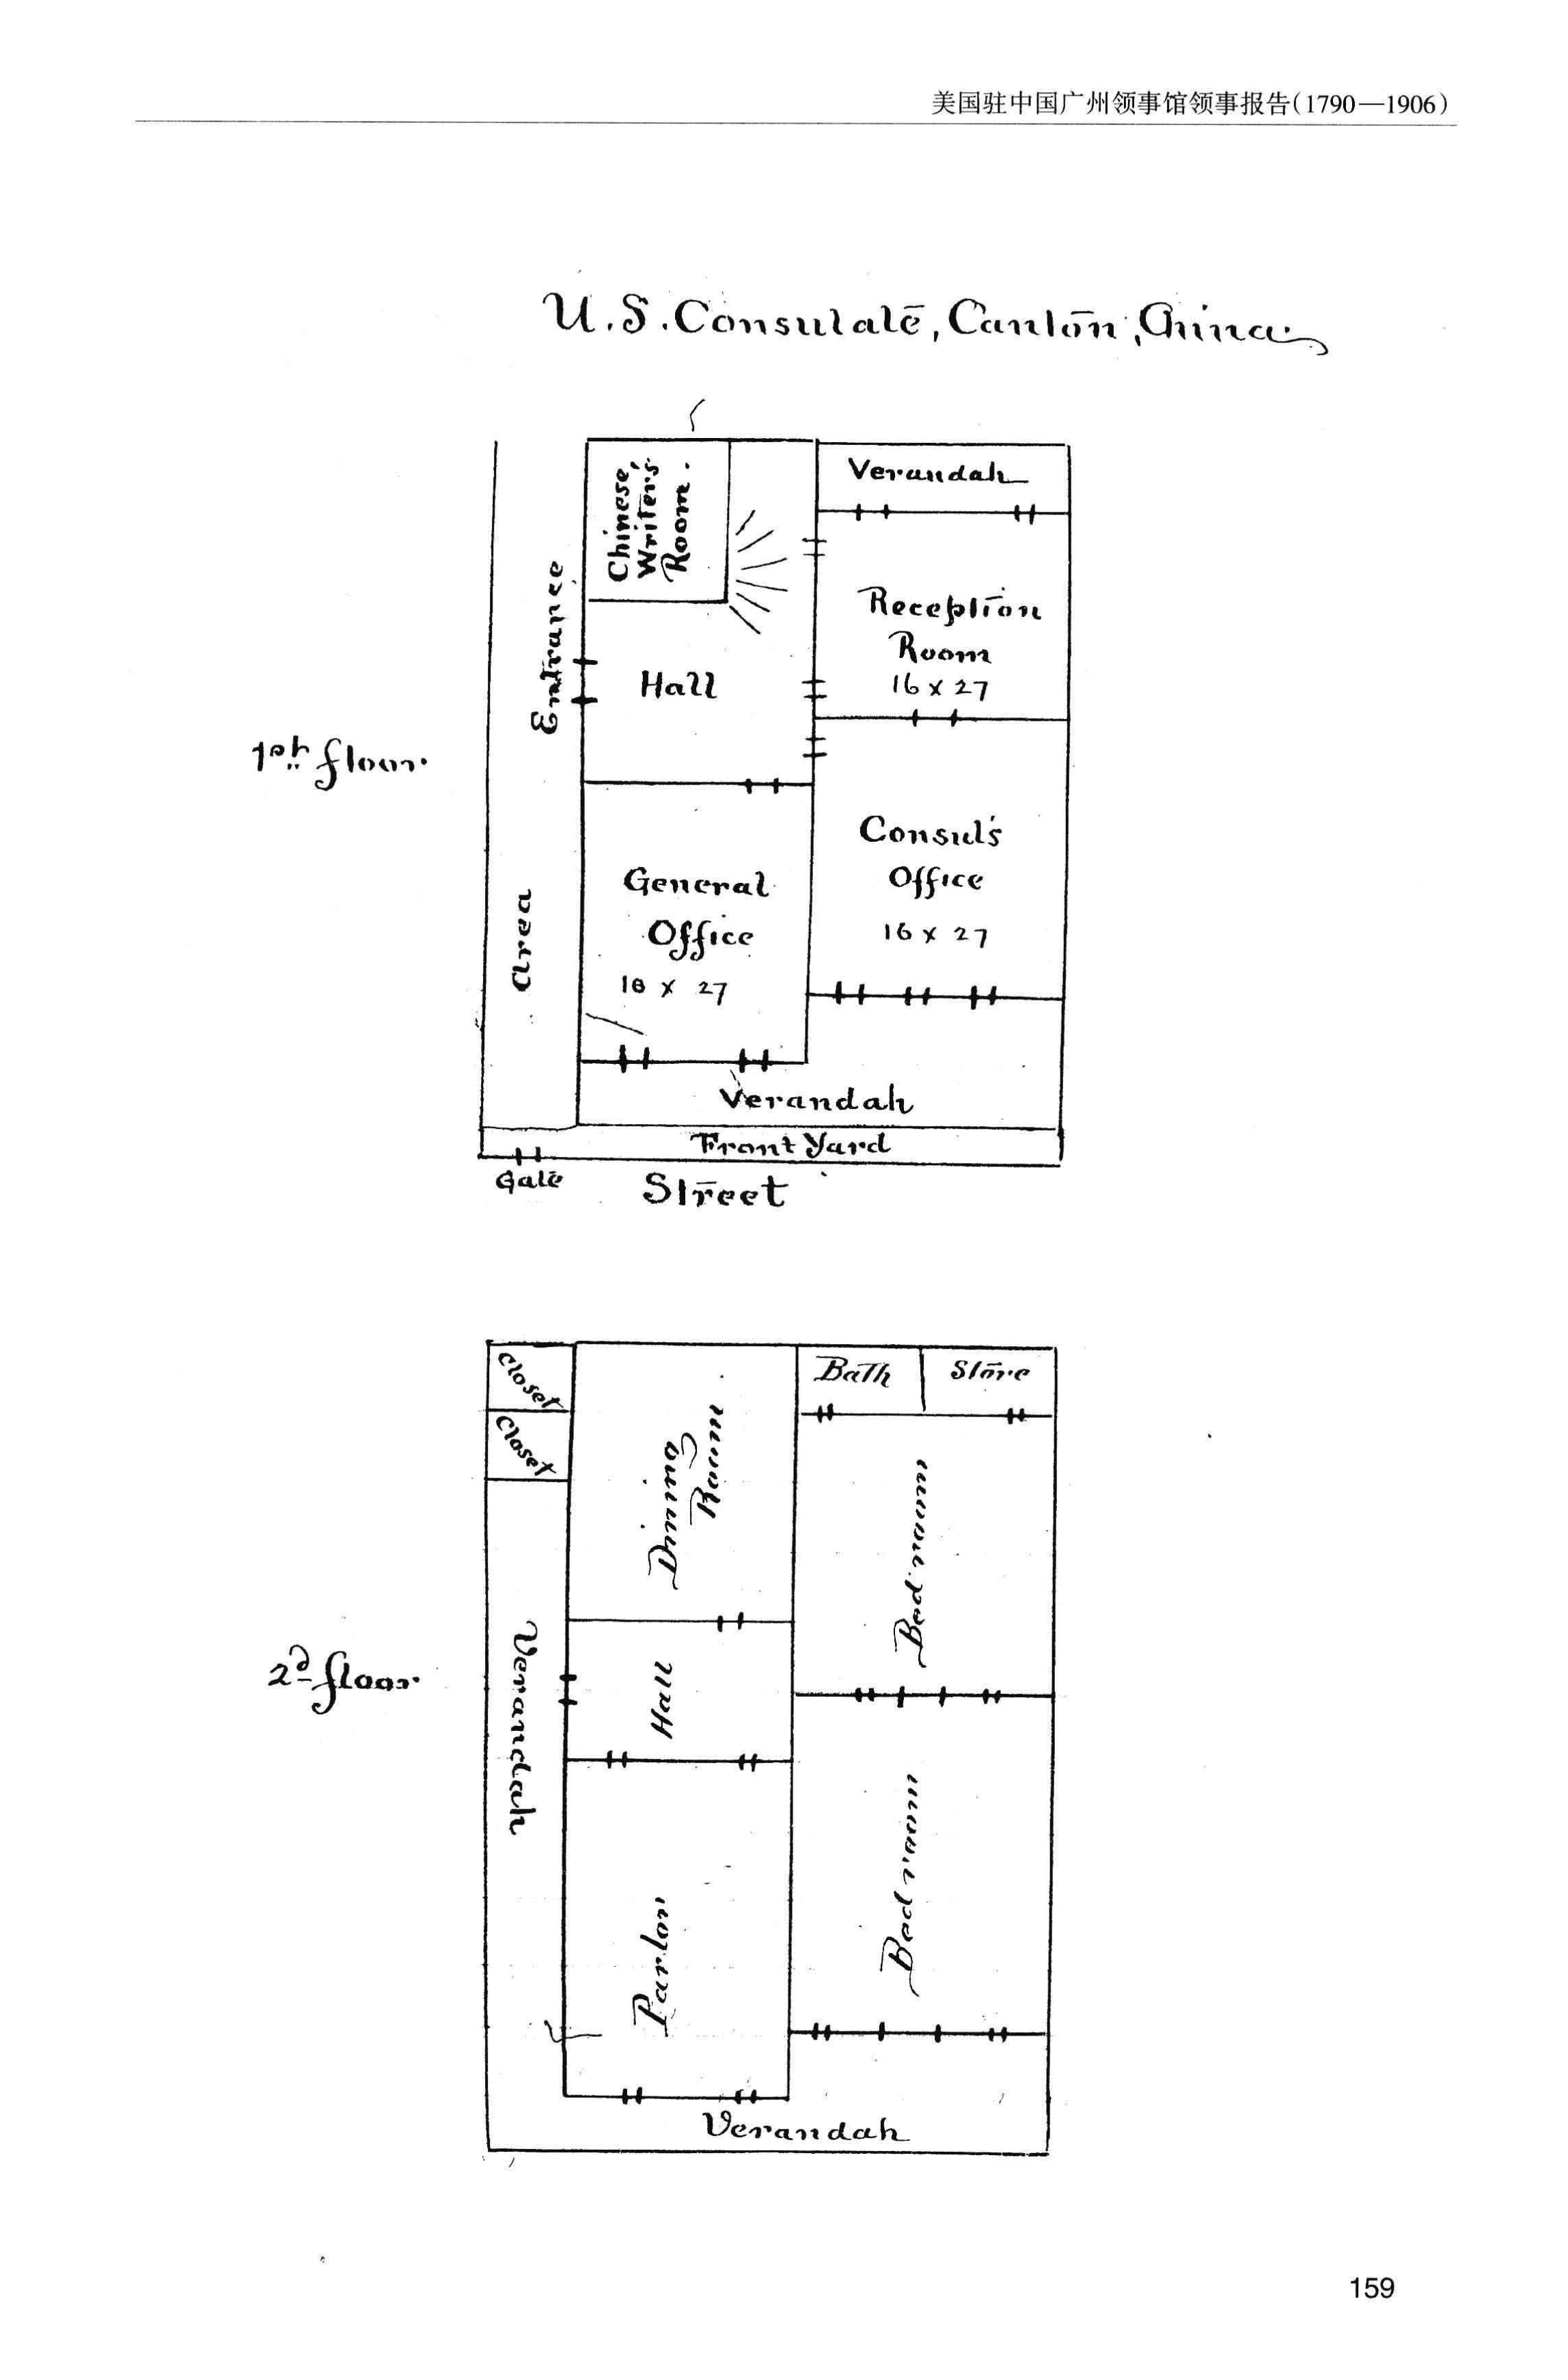 美国驻中国广州领事馆领事报告(1790—1906)
U.S. Consulate, Canton, China
1st floor.
Chinese
Writer's
Room.
Verandah
Entrance
Reception
Room
16 x 27
Hall
Area
General
Office
16 x 27
Consul's
Office
16 x 27
Verandah
Front Yard
Gate
Street
2d floor.
Closet
Closet
Dining
Room
Bath
Store
Bedroom
Verandah
Hall
Parlor
Bedroom
Verandah
159